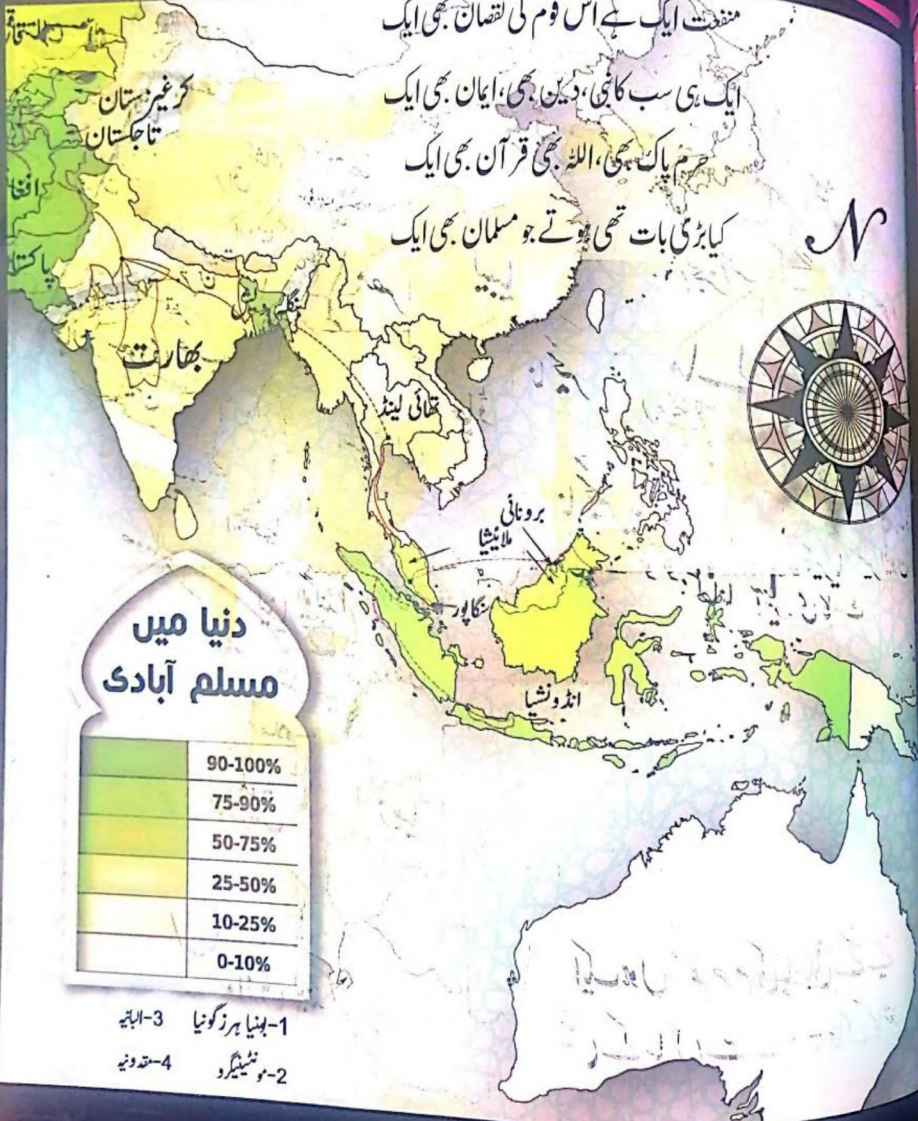 منفعت ایک ہے اس قوم کی نقصان بھی ایک
ایک ہی سب کا نبی، دین بھی، ایمان بھی ایک
حرم پاک بھی، اللہ بھی قرآن بھی ایک
کیا بڑی بات تھی ہوتے جو مسلمان بھی ایک
N
کرغیزستان
تاجکستان
بھارت
تھائی لینڈ
برونائی
ملائیشیا
سنگاپور
انڈونشیا
دنیا میں
مسلم آبادی
90-100%
75-90%
50-75%
25-50%
10-25%
0-10%
1-بوسنیا ہرزگونیا 3-البانیہ
2-مونٹینیگرو 4-مقدونیہ